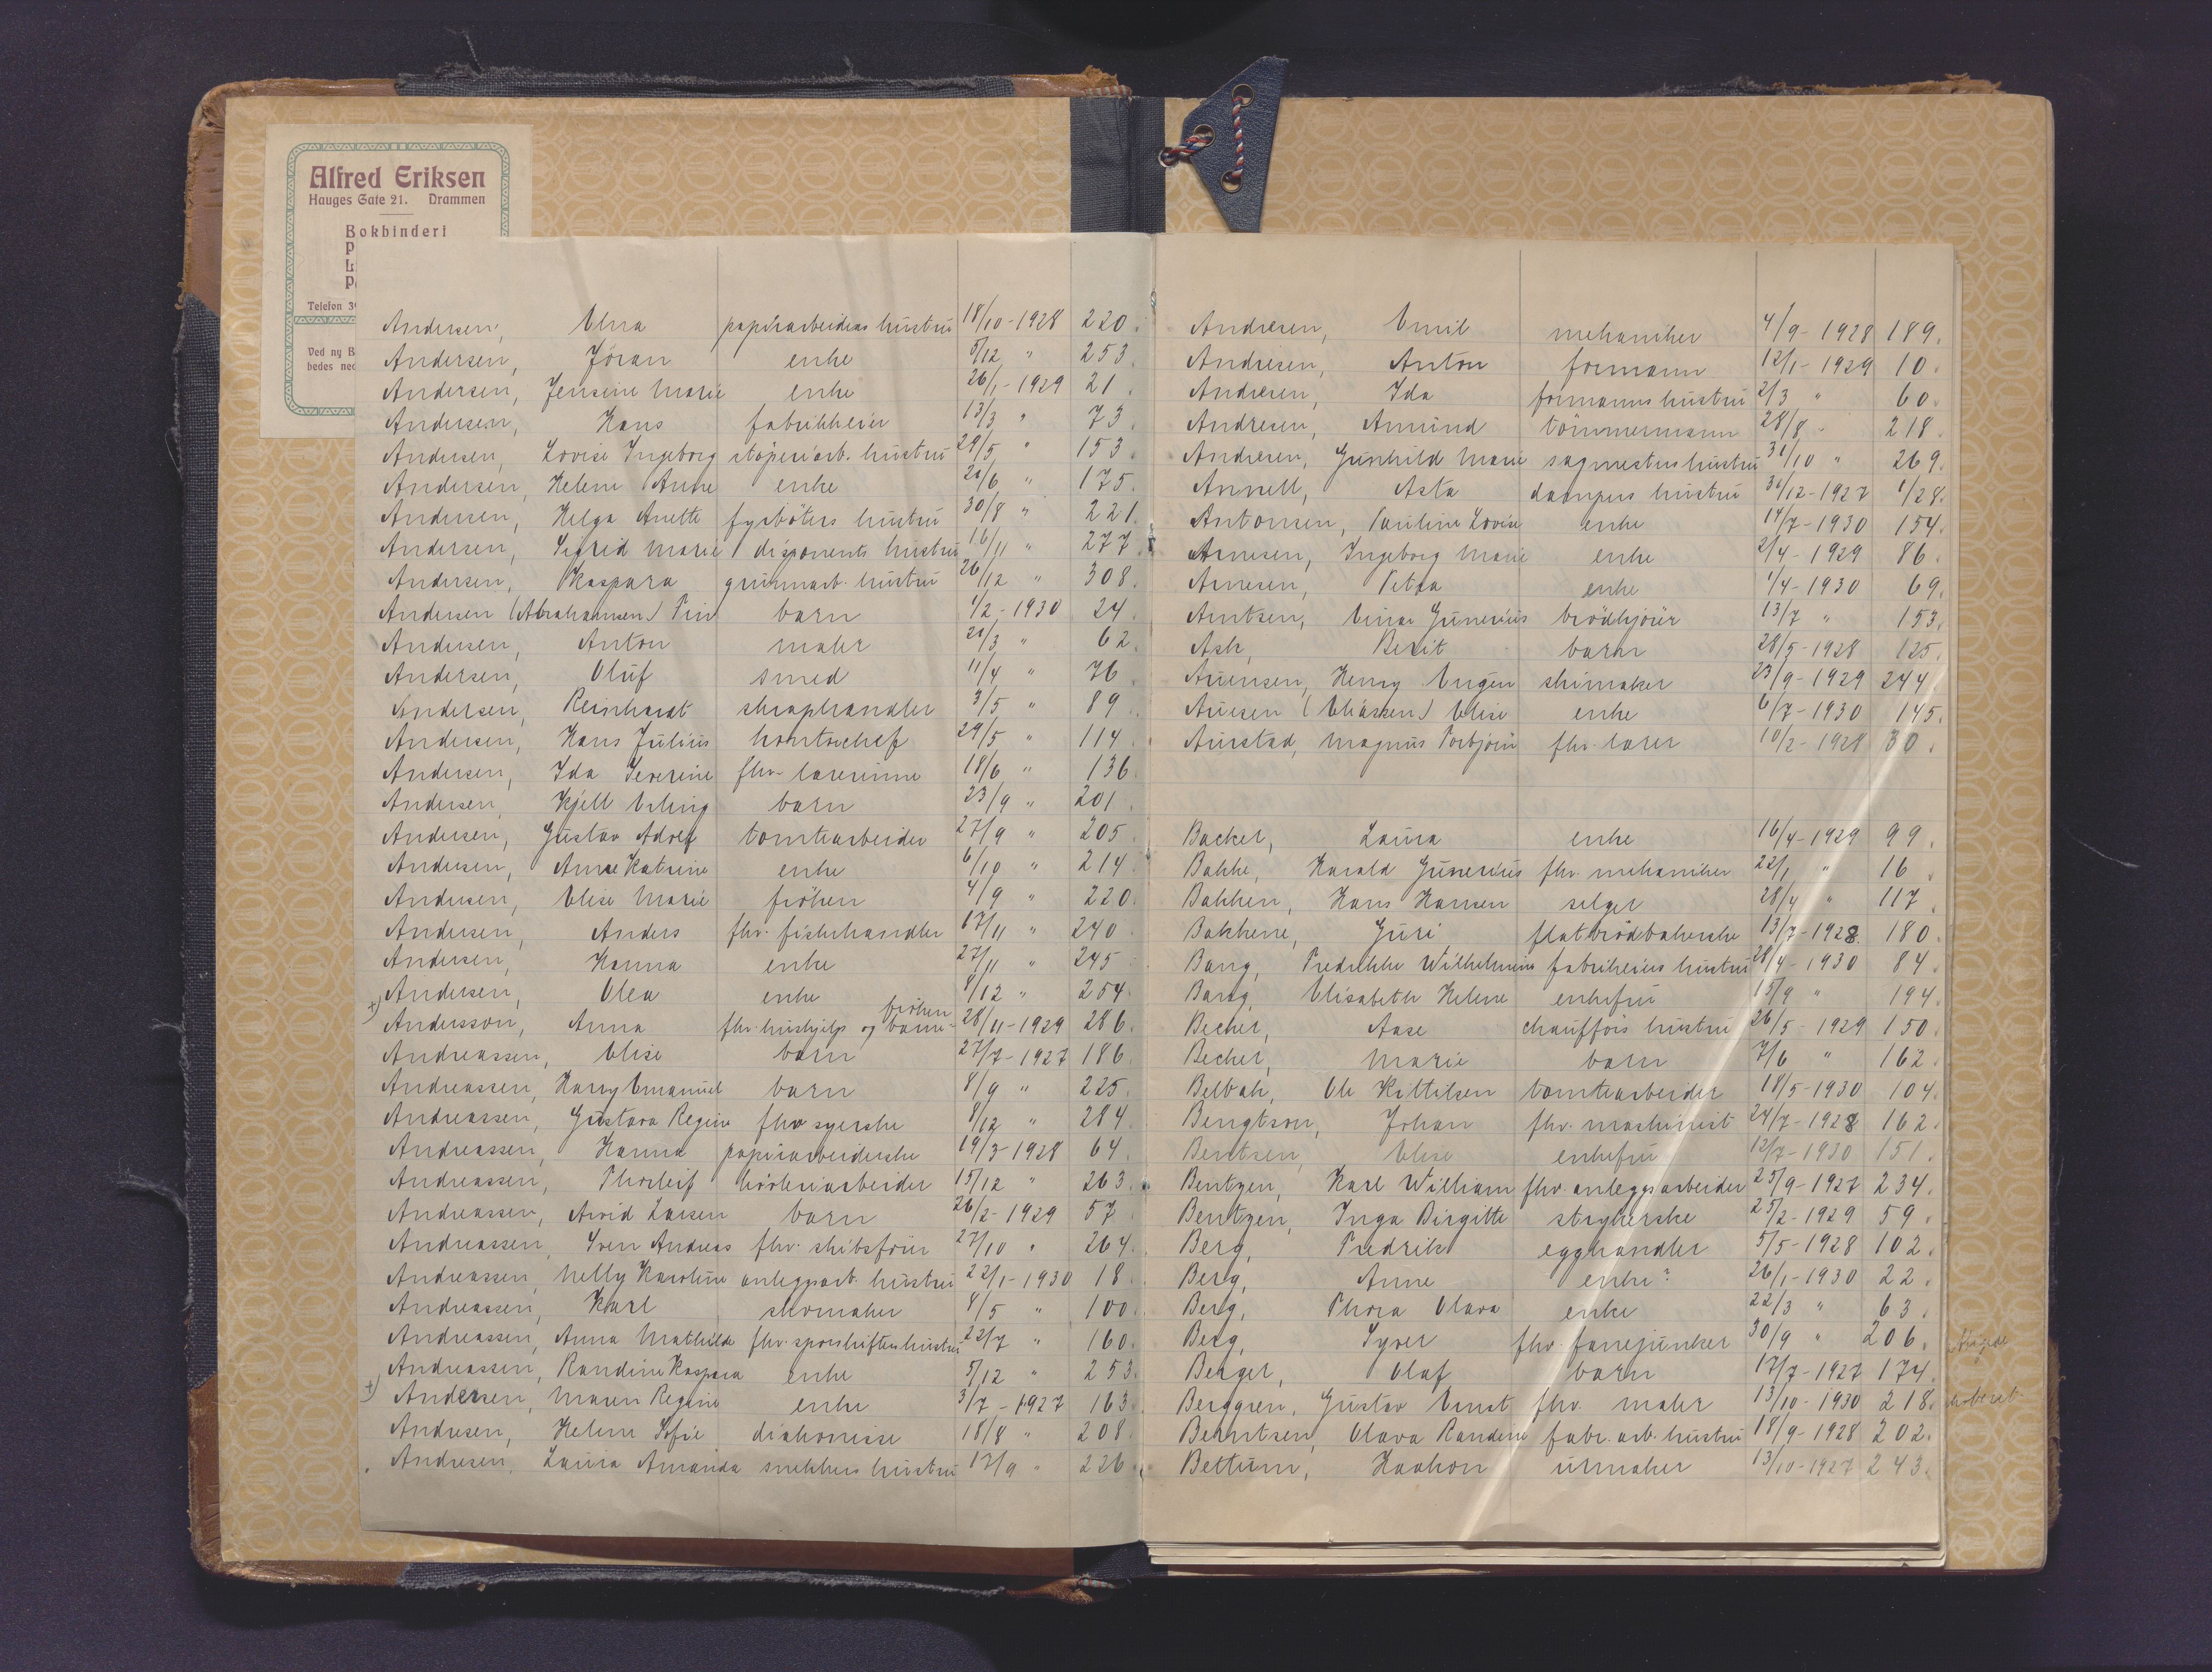 Alfred Eriksen
Hauges Gate 21. Drammen
Bokbinderi
P
L
P
Telefon 3
Ved ny B
bedes ned
Andersen, Elna papirarbeiders hustru 18/10-1928 220.
Andersen, Jöran enke 5/12 " 253.
Andersen, Jensine Marie enke 26/1-1929 21.
Andersen, Hans fabrikkeier 13/3 " 73.
Andersen, Lovise Ingeborg støperiarb. hustru 29/5 " 153.
Andersen, Helene Anne enke 20/6 " 175.
Andersen, Helga Anette fyrbøters hustru 30/8 " 221.
Andersen, Sigrid Marie disponents hustru 16/11 " 277.
Andersen, Kaspara grunnarb. hustru 26/12 " 308.
Andersen (Abrahamsen) Finn barn 1/2-1930 24.
Andersen, Anton maler 20/3 " 62.
Andersen, Oluf smed 11/4 " 76.
Andersen, Reinhardt skraphandler 3/5 " 89.
Andersen, Hans Julius kontorchef 29/5 " 114.
Andersen, Ida Severine fhv. lærerinne 18/6 " 136.
Andersen, Kjell Erling barn 23/9 " 201.
Andersen, Gustav Adolf tomtearbeider 27/9 " 205.
Andersen, Anne Katrine enke 6/10 " 214.
Andersen, Elise Marie frøken 4/9 " 220.
Andersen, Anders fhv. fiskehandler 17/11 " 240.
Andersen, Hanna enke 27/11 " 245
Andersen, Olea enke 8/12 " 254.
+) Andersson, Anna fhv. hushjelp og barnefrøken 28/11-1929 286.
Andreassen, Elise barn 27/7-1927 186.
Andreassen, Harry Emanuel barn 8/9 " 225.
Andreassen, Gustava Regine fhv syerske 8/12 " 284.
Andreassen, Hanna papirarbeiderske 19/3-1928 64.
Andreassen, Thorleif høvleriarbeider 15/12 " 263.
Andreassen, Arvid Larsen barn 26/2-1929 57
Andreassen, Sven Andreas fhv. skibsfører 27/10 " 264.
Andreassen, Nelly Karoline anleggsarb. hustru 22/1-1930 18.
Andreassen, Karl skomaker 8/5 " 100.
Andreassen, Anna Mathilde fhv. sporskifters hustru 22/7 " 160.
Andreassen, Randine Kaspara enke 5/12 " 253.
+) Andersen, Maren Regine enke 3/7-1927 163.
Andresen, Helene Sofie diakonisse 18/8 " 208.
Andresen, Laura Amanda snekkers hustru 17/9 " 226.
Andresen, Emil mekaniker 4/9-1928 189.
Andresen, Anton formann 12/1-1929 10.
Andresen, Ida formanns hustru 2/3 " 60.
Andresen, Amund tømmermann 28/8 " 218.
Andresen, Gunhild Marie sagmesters hustru 31/10 " 269.
Annell, Asta dampers hustru 31/12-1927 1/28.
Antonsen, Pauline Lovise enke 14/7-1930 154.
Arnesen, Ingeborg Marie enke 2/4-1929 86.
Arnesen, Petra enke 1/4-1930 69.
Arntsen, Einar Gunerius brødkjører 13/7 " 153.
Ask, Berit barn 28/5-1928 125.
Auensen, Henry Eugen skimaker 23/9-1929 244.
Auesen (Eliassen) Elise enke 6/7-1930 145.
Aurstad, Magnus Torbjørn fhv. lærer 10/2-1928 30.
Backer, Laura enke 16/4-1929 99.
Bakke, Harald Gunerius fhv. mekaniker 22/1 " 16
Bakken, Hans Hansen selger 28/4 " 117
Bakkene, Guri flatbrødbakerske 13/7-1928. 180.
Bang, Fredrikke Wilhelmine fabrikeiers hustru 28/4-1930 84.
Bang, Elisabeth Helene enkefru 15/9 " 194.
Becker, Aase chaufførs hustru 26/5-1929 150.
Becker, Marie barn 7/6 " 162.
Belbak, Ole Kittilsen tomtearbeider 18/5-1930 104.
Bengtson, Johan fhv. maskinist 24/7-1928 162.
Bentsen, Elise enkefru 12/7-1930 151.
Bentzen, Karl William fhv. anleggsarbeider 25/9-1927 234.
Bentzen, Inga Birgitte strykerske 25/2-1929 59.
Berg, Fredrik egghandler 5/5-1928 102.
Berg, Anne enke? 26/1-1930 22.
Berg, Thora Olava enke 22/3 " 63.
Berg, Syver fhv. fanejunker 30/9 " 206.
Berger, Olaf barn 17/7-1927 174.
Berggren, Gustav Ernst fhv. maler 13/10-1930 218.
Berntsen, Olava Randine fabr. arb. hustru 18/9-1928 202.
Bettum, Haakon urmaker 13/10-1927 243.